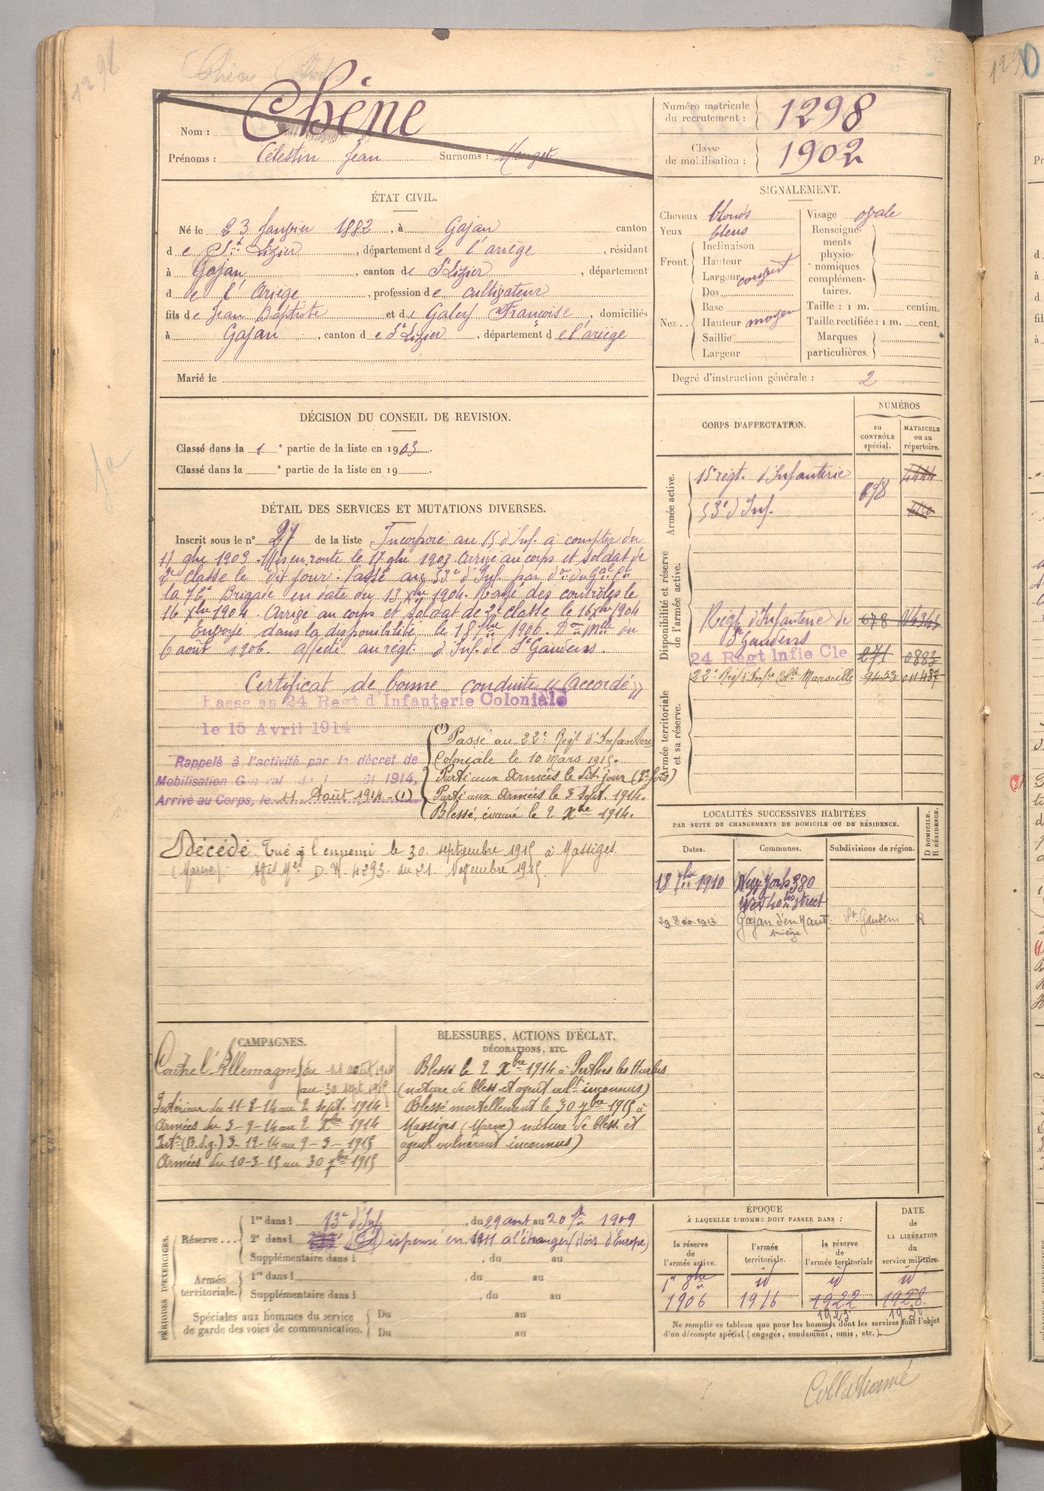 Chêne
Nom :
Prénoms : Célestin Jean Surnoms : Mouget
Numéro matricule du recrutement : 1298
Classe de mobilisation : 1902
ÉTAT CIVIL.
Né le 23 janvier 1882, à Gajan canton
d e St Lizier, département d e l'ariège, résidant
à Gajan, canton de St Lizier, département
d e l'Ariège, profession de cultivateur
fils de Jean Baptiste et de Galey Françoise, domiciliés
à Gajan, canton d e St Lizier, département d e l'ariège
Marié le
SIGNALEMENT.
Cheveux blonds
Yeux bleus
Front. Inclinaison
Hauteur
Largeur
Nez... Dos
Base
Hauteur moyen
Saillie
Largeur
Visage ovale
Renseignements physionomiques complémentaires.
Taille : 1 m. centim.
Taille rectifiée : 1 m. cent.
Marques particulières.
Degré d'instruction générale : 2
DÉCISION DU CONSEIL DE REVISION.
Classé dans la 1e partie de la liste en 1903.
Classé dans la e partie de la liste en 19
DÉTAIL DES SERVICES ET MUTATIONS DIVERSES.
Inscrit sous le n° 27 de la liste Incorporé au 15 d'Inf. à compter du
11 9bre 1903. Mis en route le 17 9bre 1903 arrivé au corps et soldat de
2e classe le dit jour. Passé au 53e d'Inf. par
la 72e Brigade en date du 13 Xbre 1904. Rayé des contrôles le
16 Xbre 1904. Arrivé au corps et soldat de 2e classe le 16 Xbre 1904
Envoyé dans la disponibilité le 18 7bre 1906. Don Mlle du
6 août 1906. affecté au régt. d'Inf. de St Gaudens.
Certificat de bonne conduite "(accordé)"
Passé au 24 Regt d Infanterie Coloniale
le 15 Avril 1914
Rappelé à l'activité par le décret de
Mobilisation 1914.
Arrivé au Corps, le 11 Août 1914. (1)
(1) Passé au 22e Régt d'Infanterie
Coloniale le 10 mars 1915.
Parti aux Armées le dit jour (2e fois)
Parti aux Armées le 3 Sept. 1914.
Blessé, évacué le 2 Xbre 1914.
Décédé. Tué à l'ennemi le 30 septembre 1915 à Massiges
(Marne) D. N. 4293. du 21 Décembre 1915.
CORPS D'AFFECTATION.
NUMÉROS
AU CONTRÔLE SPÉCIAL.
MATRICULE OU AU RÉPERTOIRE.
Armée active.
15e régt. d'Infanterie
53e d'Inf. 678
Disponibilité et réserve de l'armée active.
Regt d'Infanterie de St Gaudens 678
24 Regt Infie Cle 271 0883
22e Regt Marseille
Armée territoriale et sa réserve.
LOCALITÉS SUCCESSIVES HABITÉES
PAR SUITE DE CHANGEMENTS DE DOMICILE OU DE RÉSIDENCE.
Dates. Communes. Subdivisions de région. D DOMICILE. R RÉSIDENCE.
18 7bre 1910 New York 380
West 40 street
1913 Gajan St Gaudens R
Ariège
CAMPAGNES.
Contre l'Allemagne du 11 août 1914
au 30 sept 1915
Intérieur du 11-8-14 au 2 sept. 1914.
Armées du 3-9-14 au 2 Xbre 1914
Intr (B.d.g.) 3-12-14 au 9-3-1915
Armées du 10-3-15 au 30 7bre 1915
BLESSURES, ACTIONS D'ÉCLAT,
DÉCORATIONS, ETC.
Blessé le 2 Xbre 1914 à Perthes les Hurlus
(nature de bless. et agent vulnt inconnus)
Blessé mortellement le 30 7bre 1915 à
Massiges (Marne) nature de bless. et
agent vulnérant inconnus)
PÉRIODES D'EXERCICES.
Réserve... 1re dans l 13e d'Inf, du 29 aout au 20 7bre 1909
2e dans l Dispensé en 1911 à l'étranger (hors d'Europe)
Supplémentaire dans l, du au
Armée territoriale. 1re dans l, du au
Supplémentaire dans l, du au
Spéciales aux hommes du service de garde des voies de communication. Du au
Du au
ÉPOQUE
À LAQUELLE L'HOMME DOIT PASSER DANS :
la réserve de l'armée active. l'armée territoriale. la réserve de l'armée territoriale
DATE DE LA LIBÉRATION DU service militaire.
1er 8bre id id id
1906 1916 1922 1928
Ne remplir ce tableau que pour les hommes dont les services font l'objet
d'un décompte spécial (engagés, condamnés, omis, etc.)
Collationné